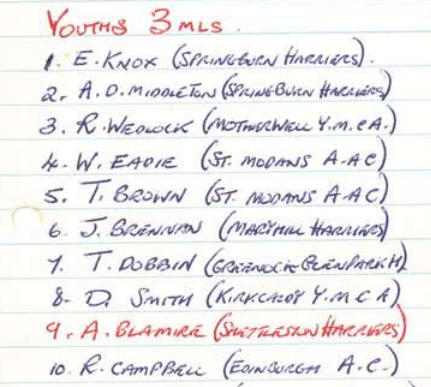 YOUTHS 3 MLS.
1. E. KNOX (SPRINGBURN HARRIERS).
2. A. D. MIDDLETON (SPRINGBURN HARRIERS)
3. R. WEDLOCK (MOTHERWELL Y.M.C.A.)
4. W. EADIE (ST. MODANS A.A.C)
5. T. BROWN (ST. MODANS A A C)
6. J. BRENNAN (MARYHILL HARRIERS)
7. T. DOBBIN (GREENOCK GLENPARK H)
8. D. SMITH (KIRKCALDY Y.M.C.A)
9. A. BLAMIRE (SHETTLESTON HARRIERS)
10. R. CAMPBELL (EDINBURGH A.C.)